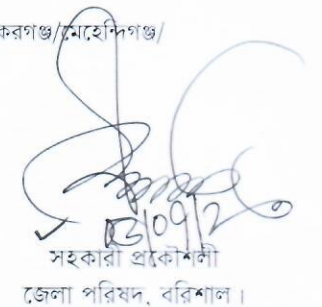 করগঞ্জ/মেহেন্দিগঞ্জ/
সহকারী প্রকৌশলী
জেলা পরিষদ, বরিশাল।